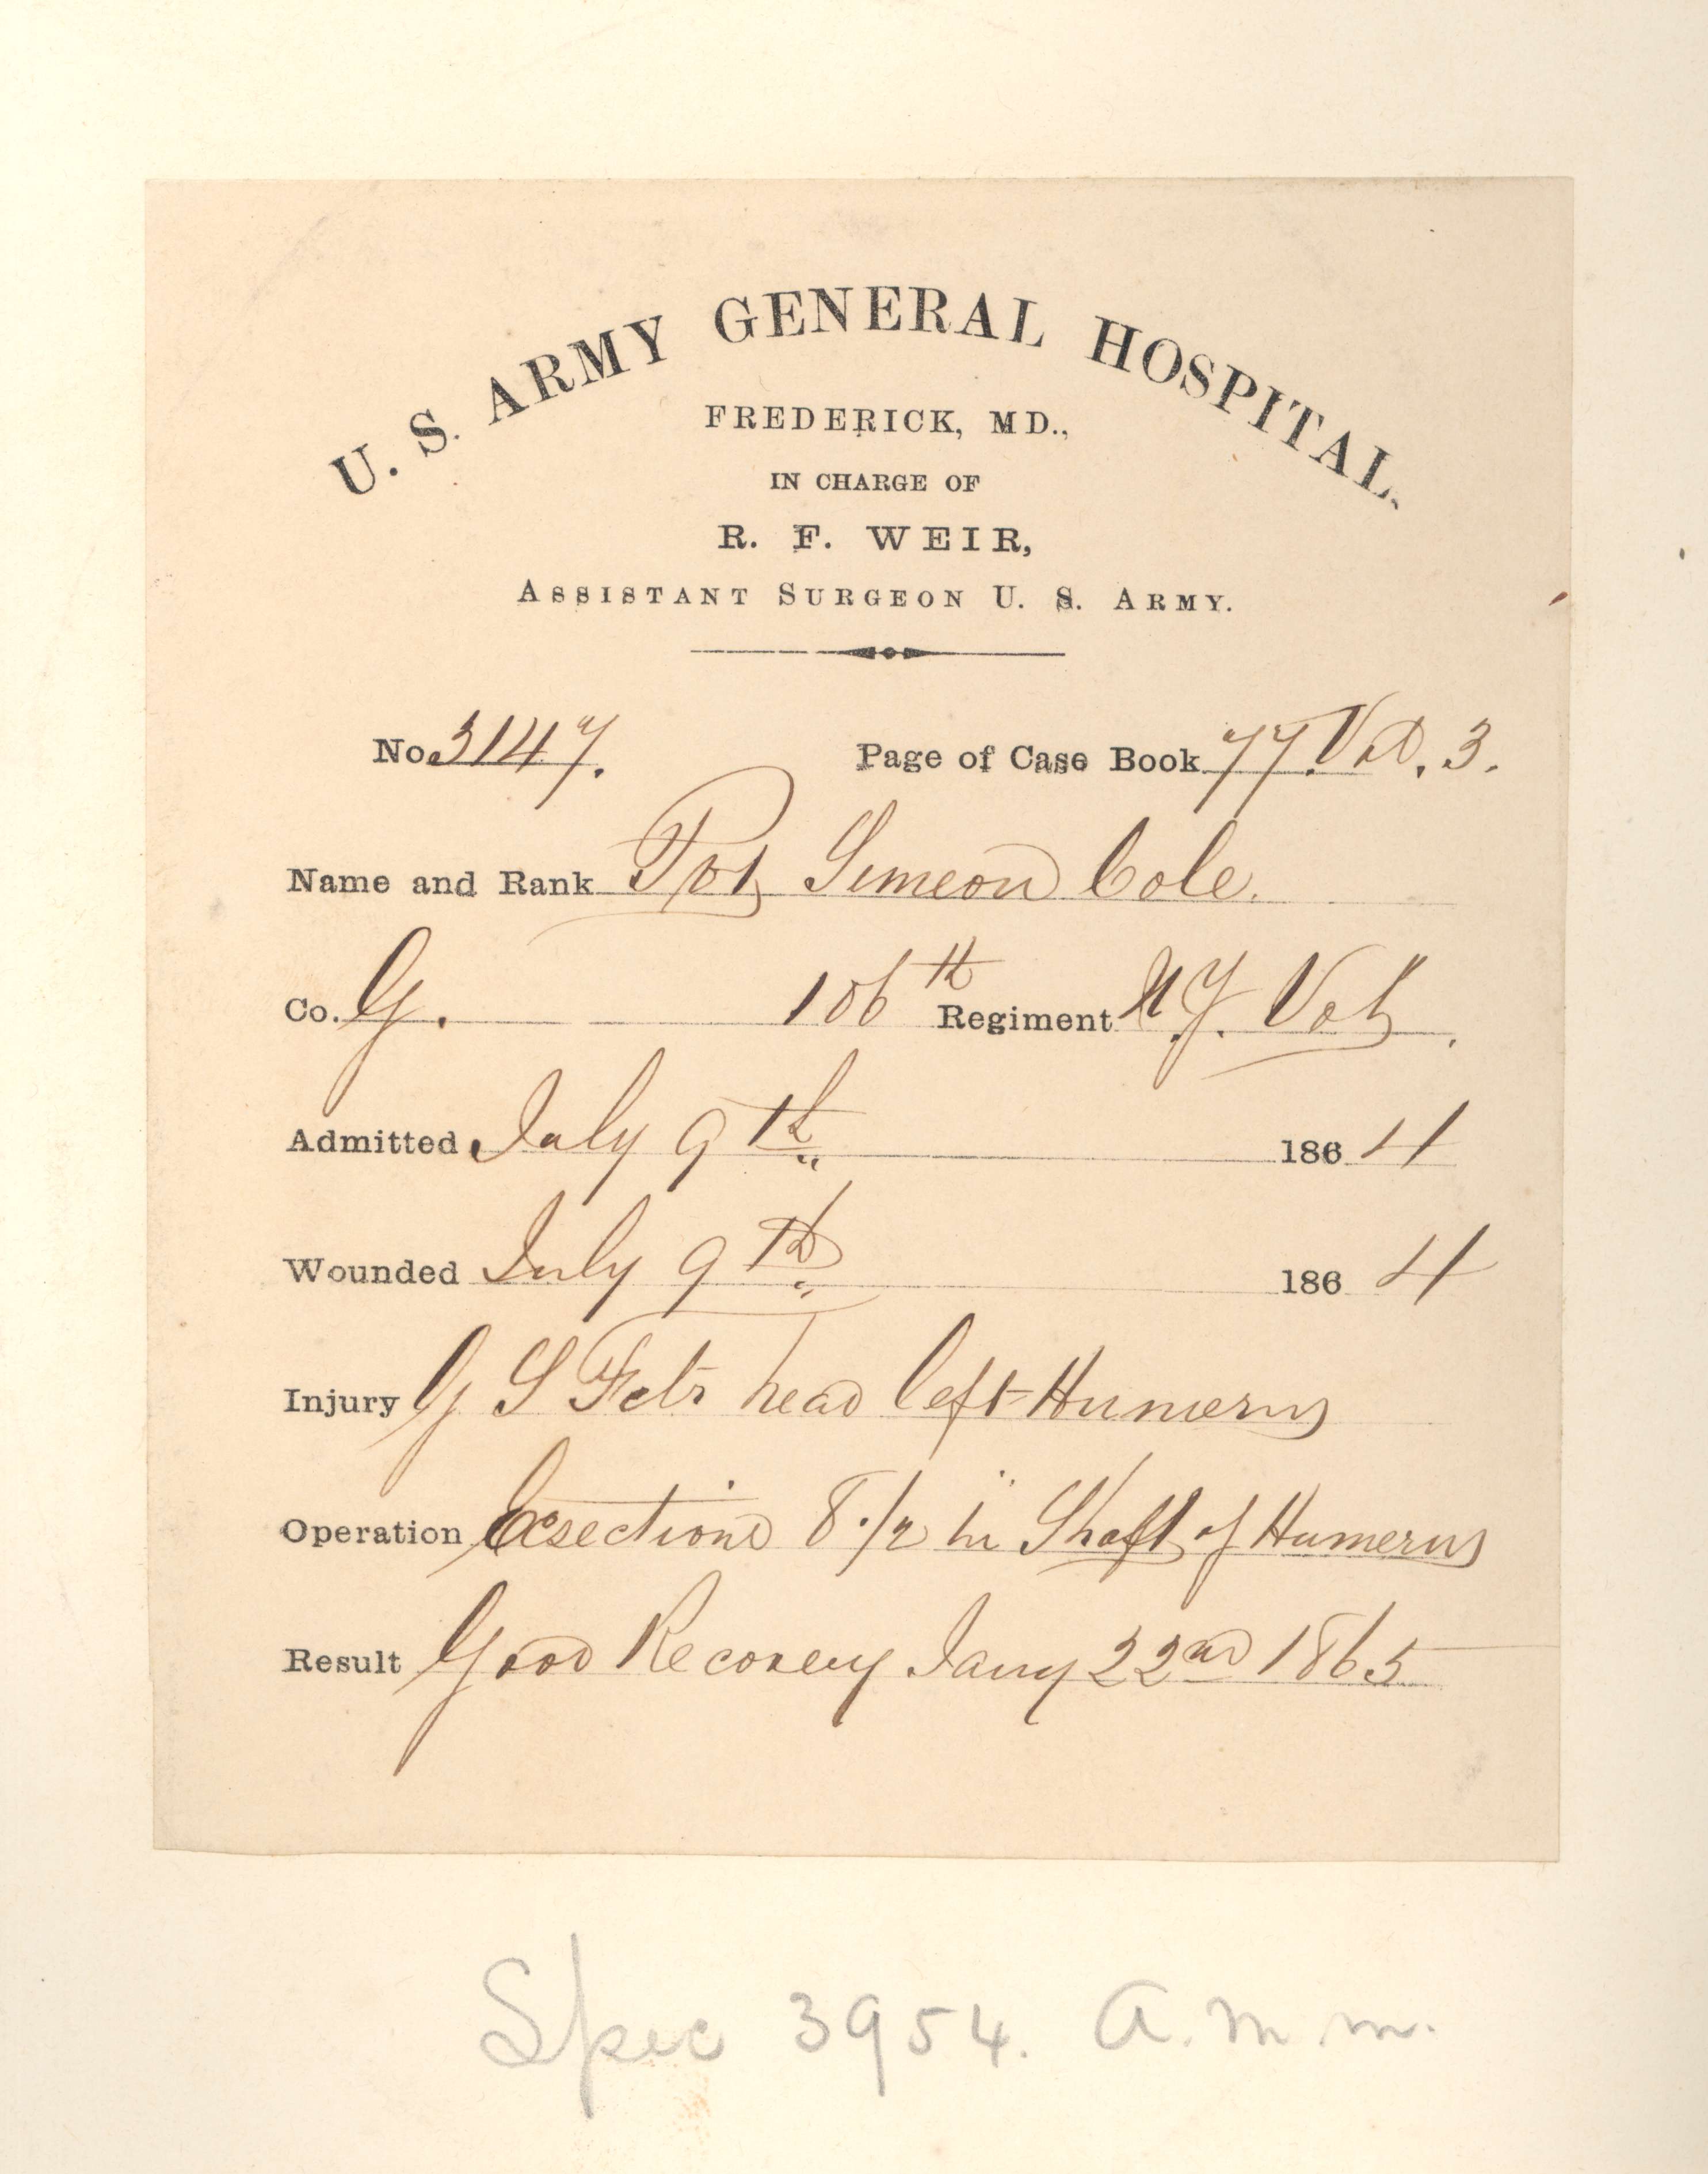 U. S. ARMY GENERAL HOSPITAL,
FREDERICK, MD.,
IN CHARGE OF
R. F. WEIR,
ASSISTANT SURGEON U. S. ARMY.
No. 3147. Page of Case Book 77. Vol. 3.
Name and Rank Pvt Simeon Cole.
Co. G. 106th Regiment N.Y. Vols.
Admitted July 9th 1864
Wounded July 9th 1864
Injury G S Fctr head left Humerus
Operation Exsection 8 1/2 in Shaft of Humerus
Result Good Recovery Jany 22nd 1865
Spec 3954. A. M. M.